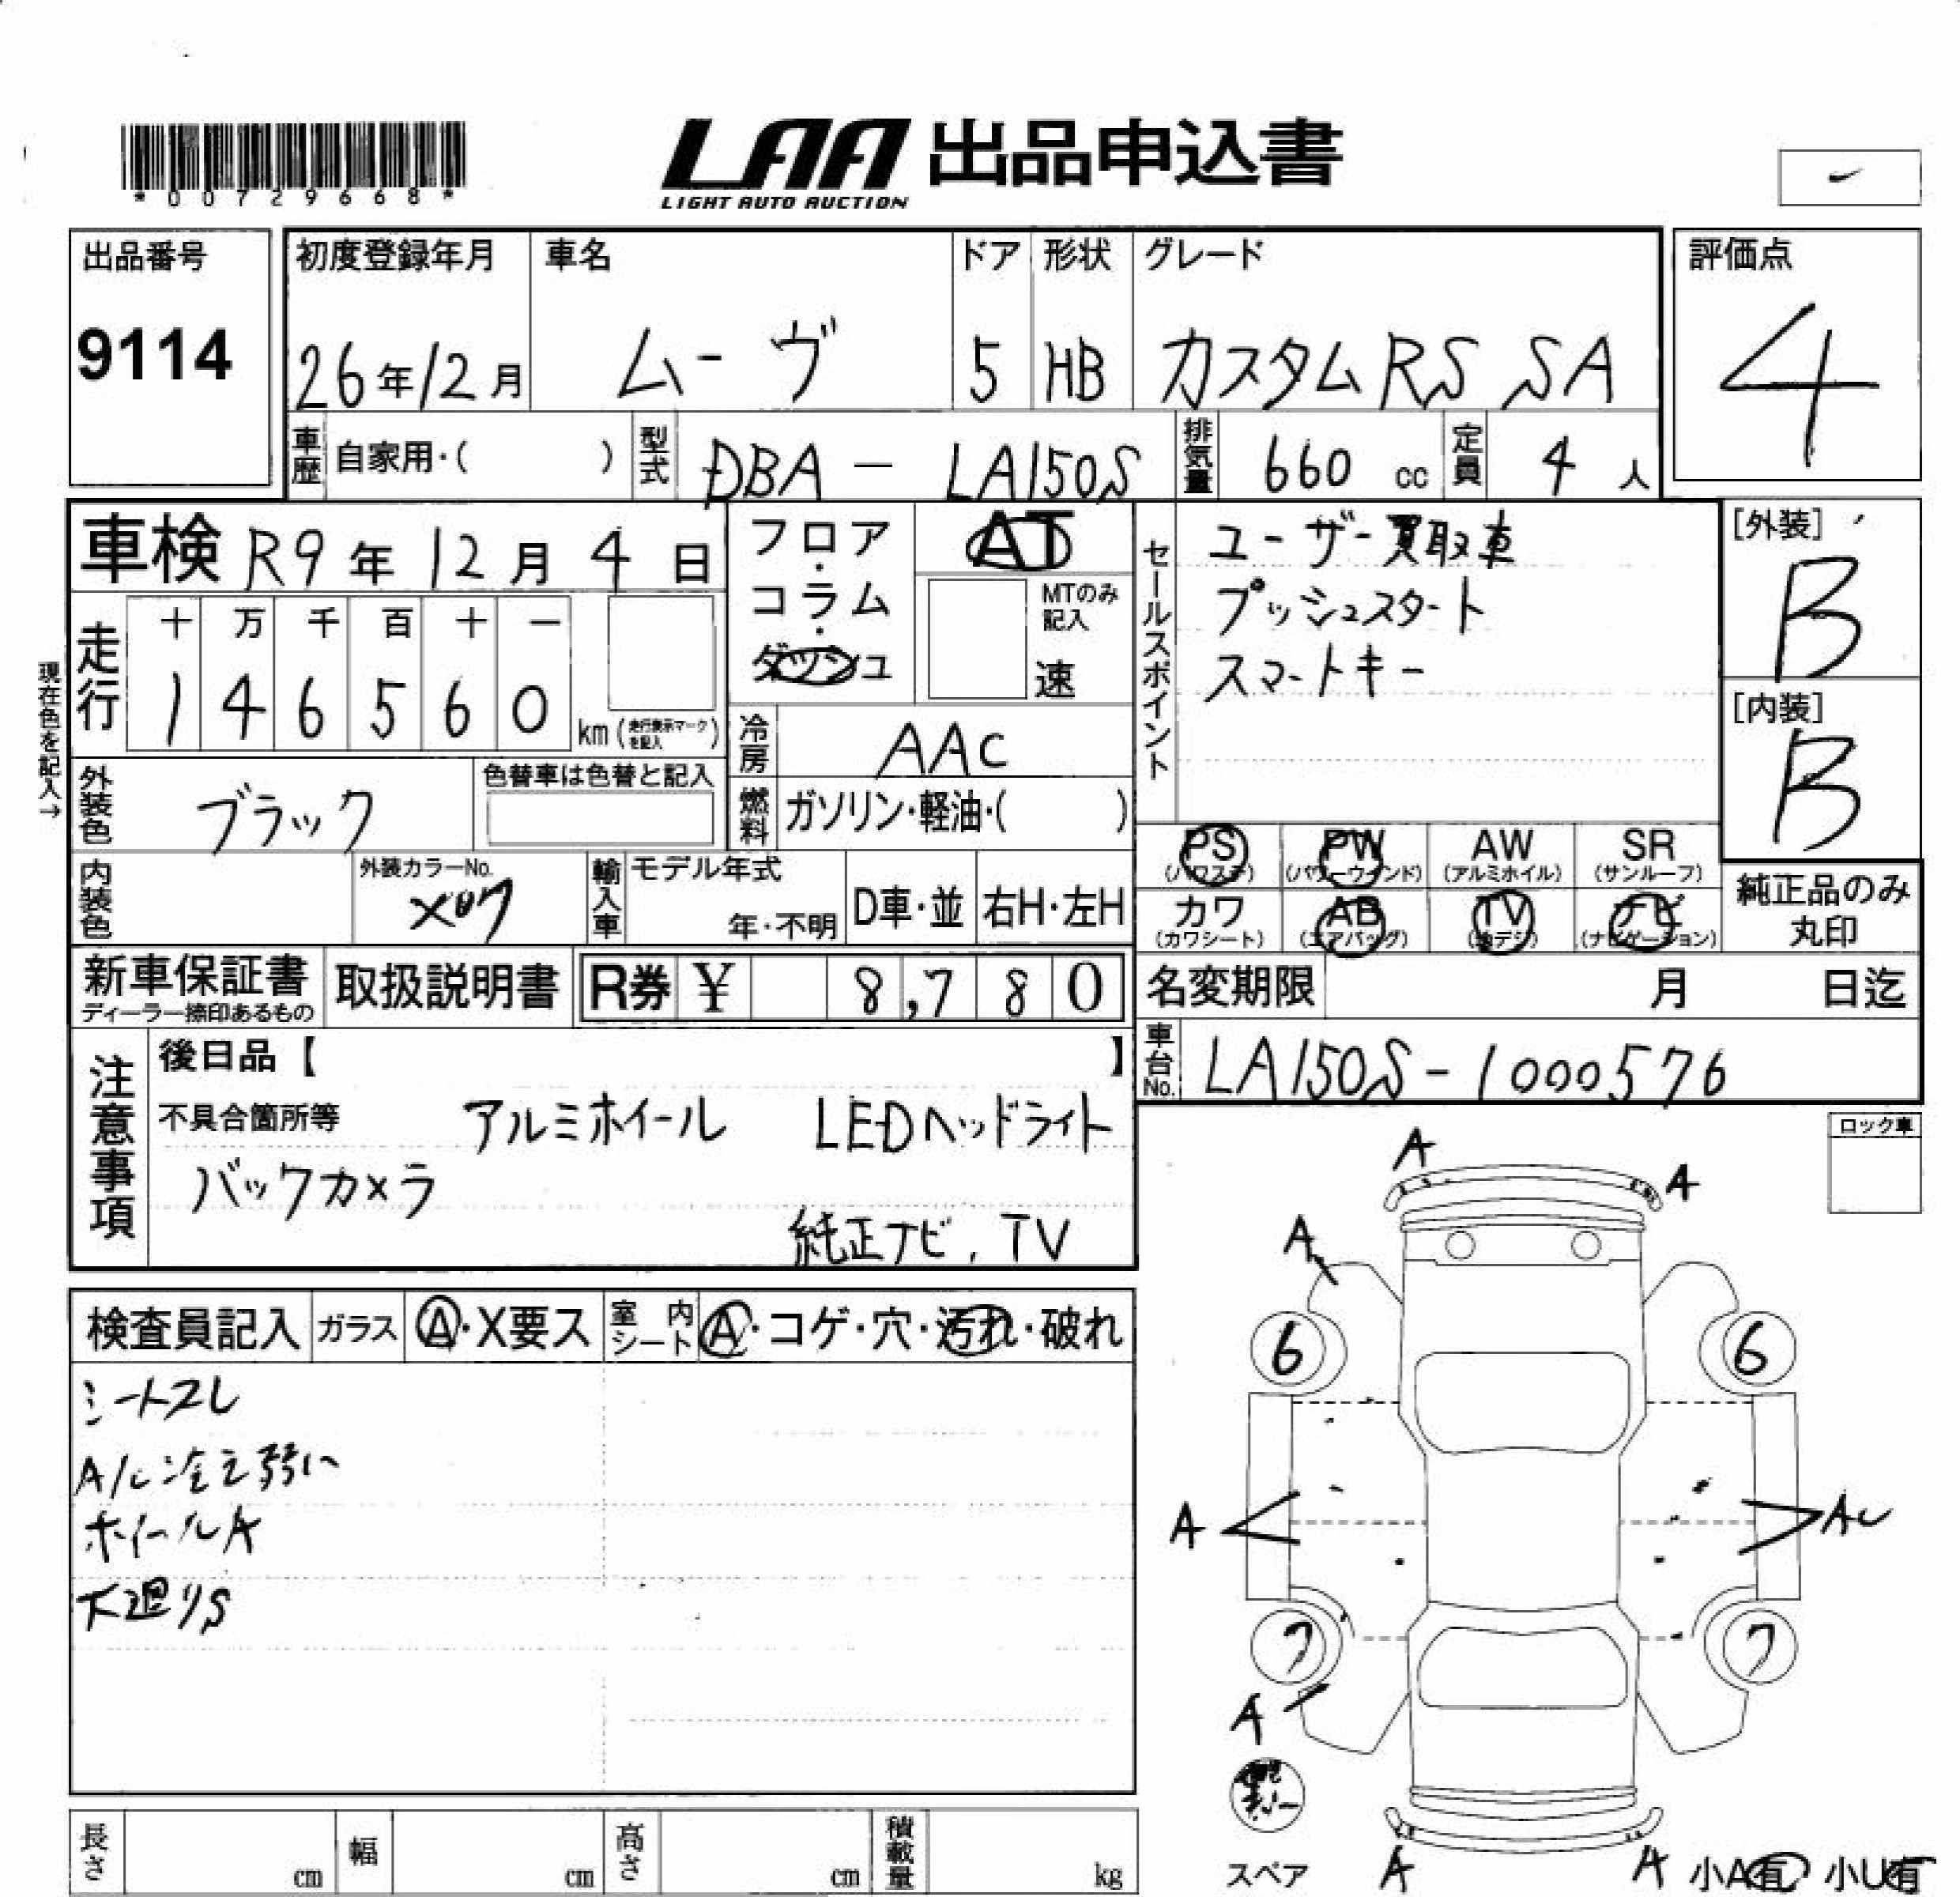 *00729668*
LAA 出品申込書
LIGHT AUTO AUCTION
出品番号
9114
初度登録年月 車名 ドア 形状 グレード
26年12月 ムーヴ 5 HB カスタム RS SA
評価点
4
車歴 自家用・( ) 型式 DBA - LA150S 排気量 660 cc 定員 4 人
車検 R9年 12月 4日
フロア・コラム・ダッシュ
AT
MTのみ記入
速
セールスポイント
ユーザー買取車
プッシュスタート
スマートキー
[外装]
B
[内装]
B
現在色を記入→
走行
十 万 千 百 十 一
1 4 6 5 6 0 km (走行表示マークを記入)
冷房 AAC
燃料 ガソリン・軽油・( )
外装色 ブラック
色替車は色替と記入
内装色
外装カラーNo.
X07
輸入車 モデル年式
年・不明 D車・並 右H・左H
PS (パワステ) PW (パワーウインド) AW (アルミホイル) SR (サンルーフ)
カワ (カワシート) AB (エアバッグ) TV (地デジ) ナビ (ナビゲーション)
純正品のみ
丸印
新車保証書
ディーラー捺印あるもの
取扱説明書
R券 ¥ 8,780
名変期限 月 日迄
車台No. LA150S-1000576
注意事項
後日品【 】
不具合箇所等 アルミホイール LEDヘッドライト
バックカメラ
純正ナビ, TV
ロック車
検査員記入 ガラス A・X要ス 室内シート A・コゲ・穴・汚れ・破れ
シートスレ
A/C冷え弱い
ホイールA
下廻りS
A
A
A
6 6
A A
7 7
A
スペア
A A
小A有 小U有
長さ cm 幅 cm 高さ cm 積載量 kg